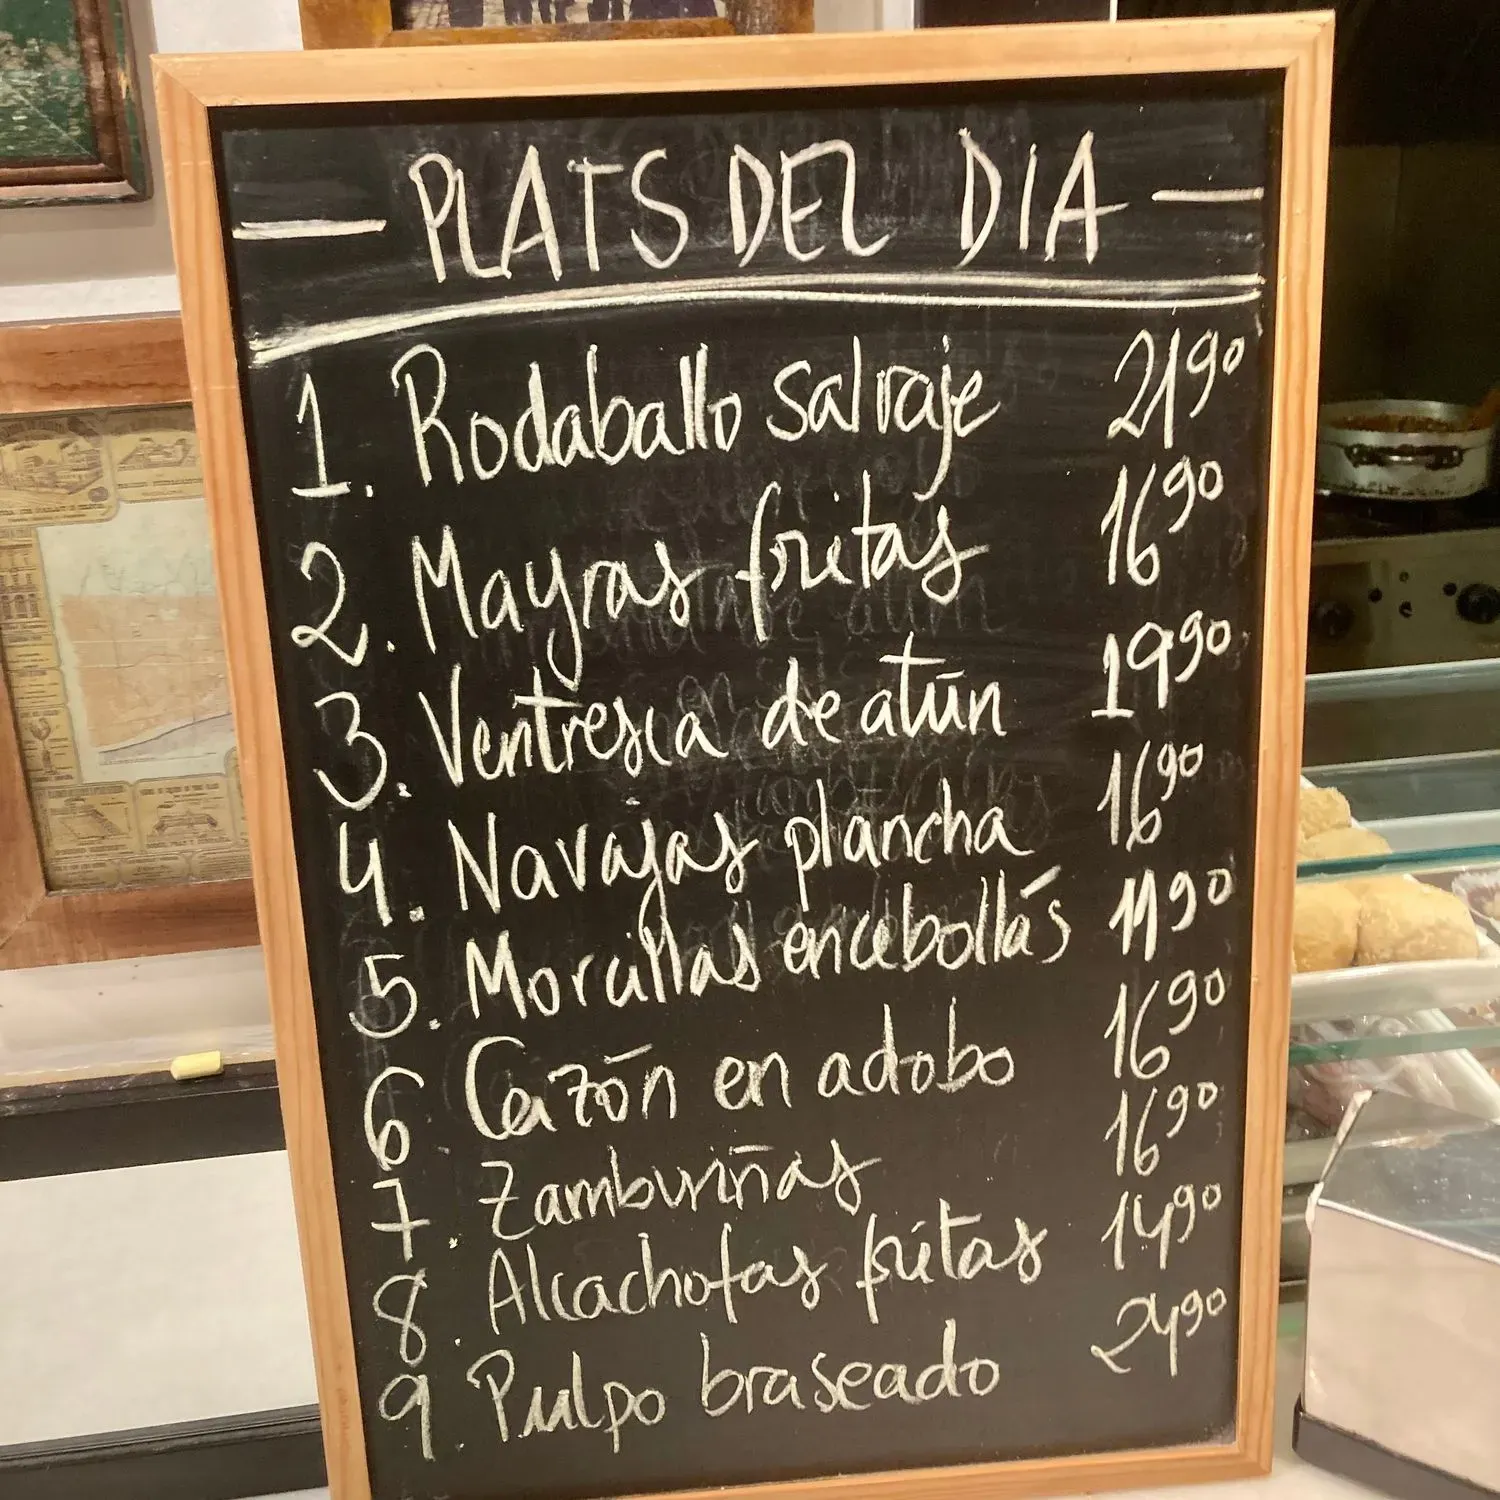 PLATS DEL DIA
1. Rodaballo salvaje 21,90
2. Mayras fritas 16,90
3. Ventresca de atún 19,90
4. Navajas plancha 16,90
5. Morcillas encebollás 11,90
6 Cazón en adobo 16,90
7. Zamburiñas 16,90
8. Alcachofas fritas 14,90
9. Pulpo braseado 24,90